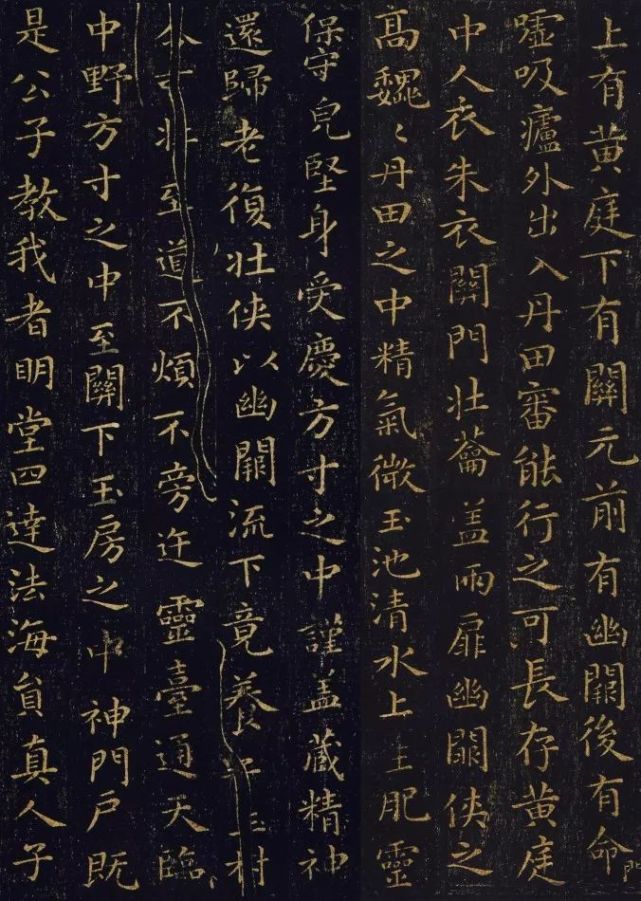 上有黃庭下有關元前有幽闕後有命門
噓吸廬外出入丹田審能行之可長存黃庭
中人衣朱衣關門壯籥蓋兩扉幽闕俠之
高魏〻丹田之中精氣微玉池清水上生肥靈
保守皃堅身受慶方寸之中謹蓋藏精神
還歸老復壯俠以幽闕流下竟養子玉樹
至道不煩不旁迕靈臺通天臨
中野方寸之中至關下玉房之中神門戶既
是公子教我者明堂四達法海員真人子